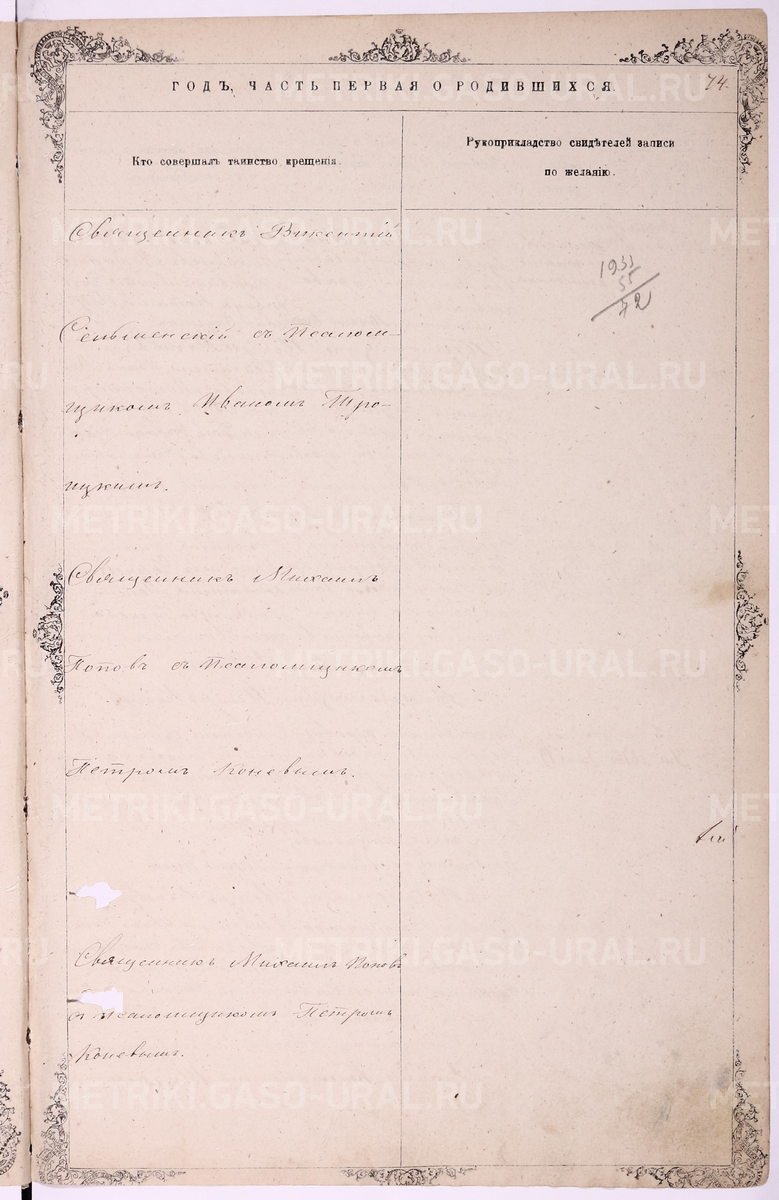 ГОДЪ, ЧАСТЬ ПЕРВАЯ О РОДИВШИХСЯ.
74.
Кто совершалъ таинство крещенія.
Рукоприкладство свидѣтелей записи
по желанію.
Священникъ Викентій
Сельменскій съ Псалом-
щикомъ Иваномъ Тро-
ицкимъ.
1933
55
72
Священникъ Михаилъ
Поповъ съ Псаломщикомъ
Петромъ Коневымъ.
Священникъ Михаилъ Поповъ
съ Псаломщикомъ Петромъ
Коневымъ.
METRIKI.GASO-URAL.RU